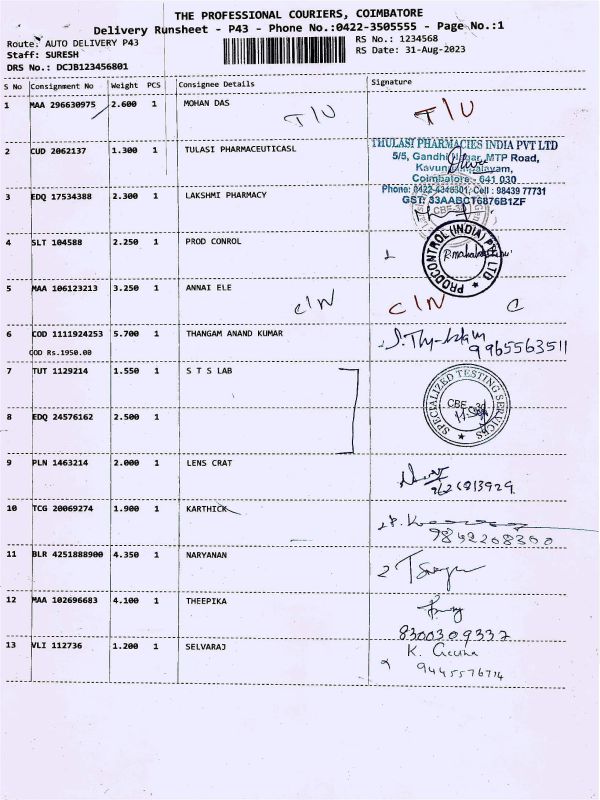 THE PROFESSIONAL COURIERS, COIMBATORE
Delivery Runsheet - P43 - Phone No.:0422-3505555 - Page No.:1
Route: AUTO DELIVERY P43
RS No.: 1234568
Staff: SURESH
RS Date: 31-Aug-2023
DRS No.: DCJB123456801
S No Consignment No Weight PCS Consignee Details Signature
1 MAA 296630975 2.600 1 MOHAN DAS T/U T/U
2 CUD 2062137 1.300 1 TULASI PHARMACEUTICASL
THULASI PHARMACIES INDIA PVT LTD
5/5, Gandhi Nagar, MTP Road,
Coimbatore - 641 030
Phone: 0422-4346301, Cell : 98439 77731
GST: 33AABCT6876B1ZF
3 EDQ 17534388 2.300 1 LAKSHMI PHARMACY
CBE-30
4 SLT 104588 2.250 1 PROD CONROL
PRODCONTROL (INDIA) PVT LTD
5 MAA 106123213 3.250 1 ANNAI ELE C/N C/N C
6 COD 1111924253 5.700 1 THANGAM ANAND KUMAR
COD Rs.1950.00
9965563511
7 TUT 1129214 1.550 1 S T S LAB
SPECIALIZED TESTING SERVICES
CBE-30
8 EDQ 24576162 2.500 1
9 PLN 1463214 2.000 1 LENS CRAT
10 TCG 20069274 1.900 1 KARTHICK
9842208300
11 BLR 4251888900 4.350 1 NARYANAN
12 MAA 102696683 4.100 1 THEEPIKA
8300309337
13 VLI 112736 1.200 1 SELVARAJ
K. Geetha
9445576714